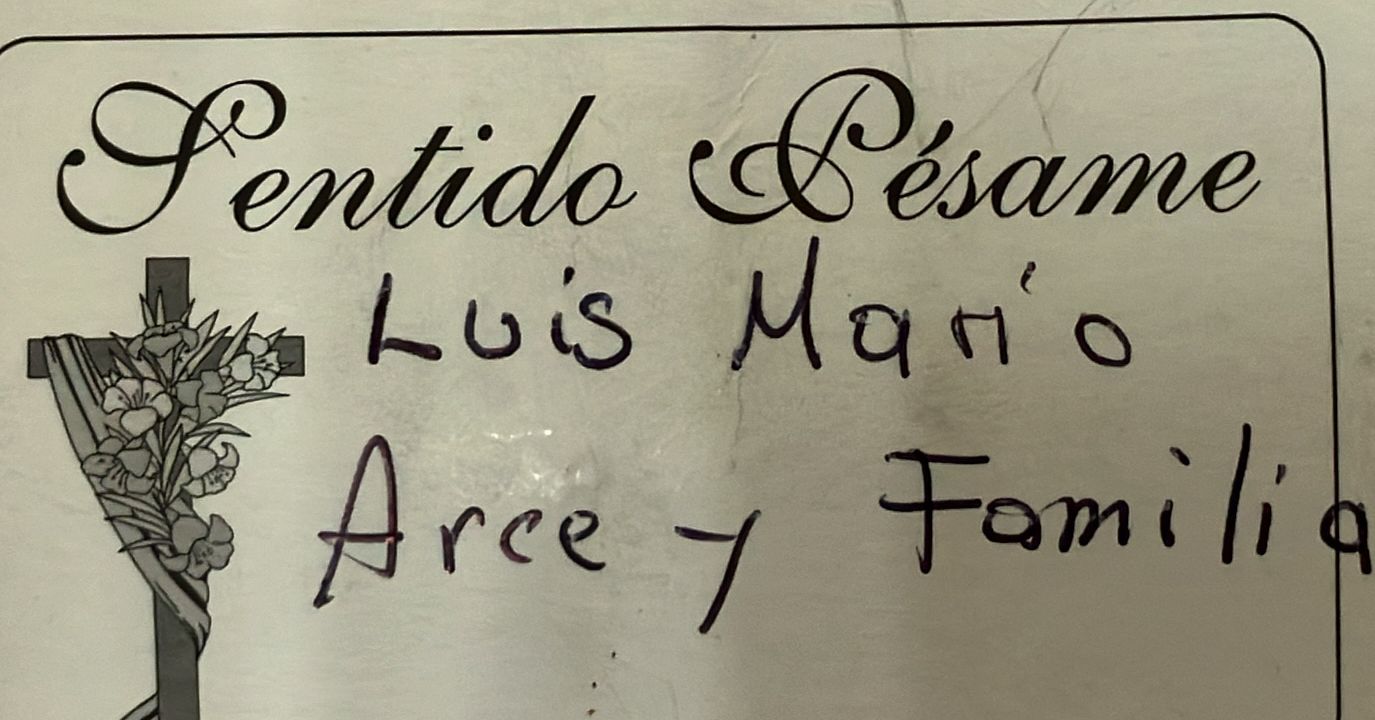 Sentido Pésame
Luis Mario
Arce y Familia